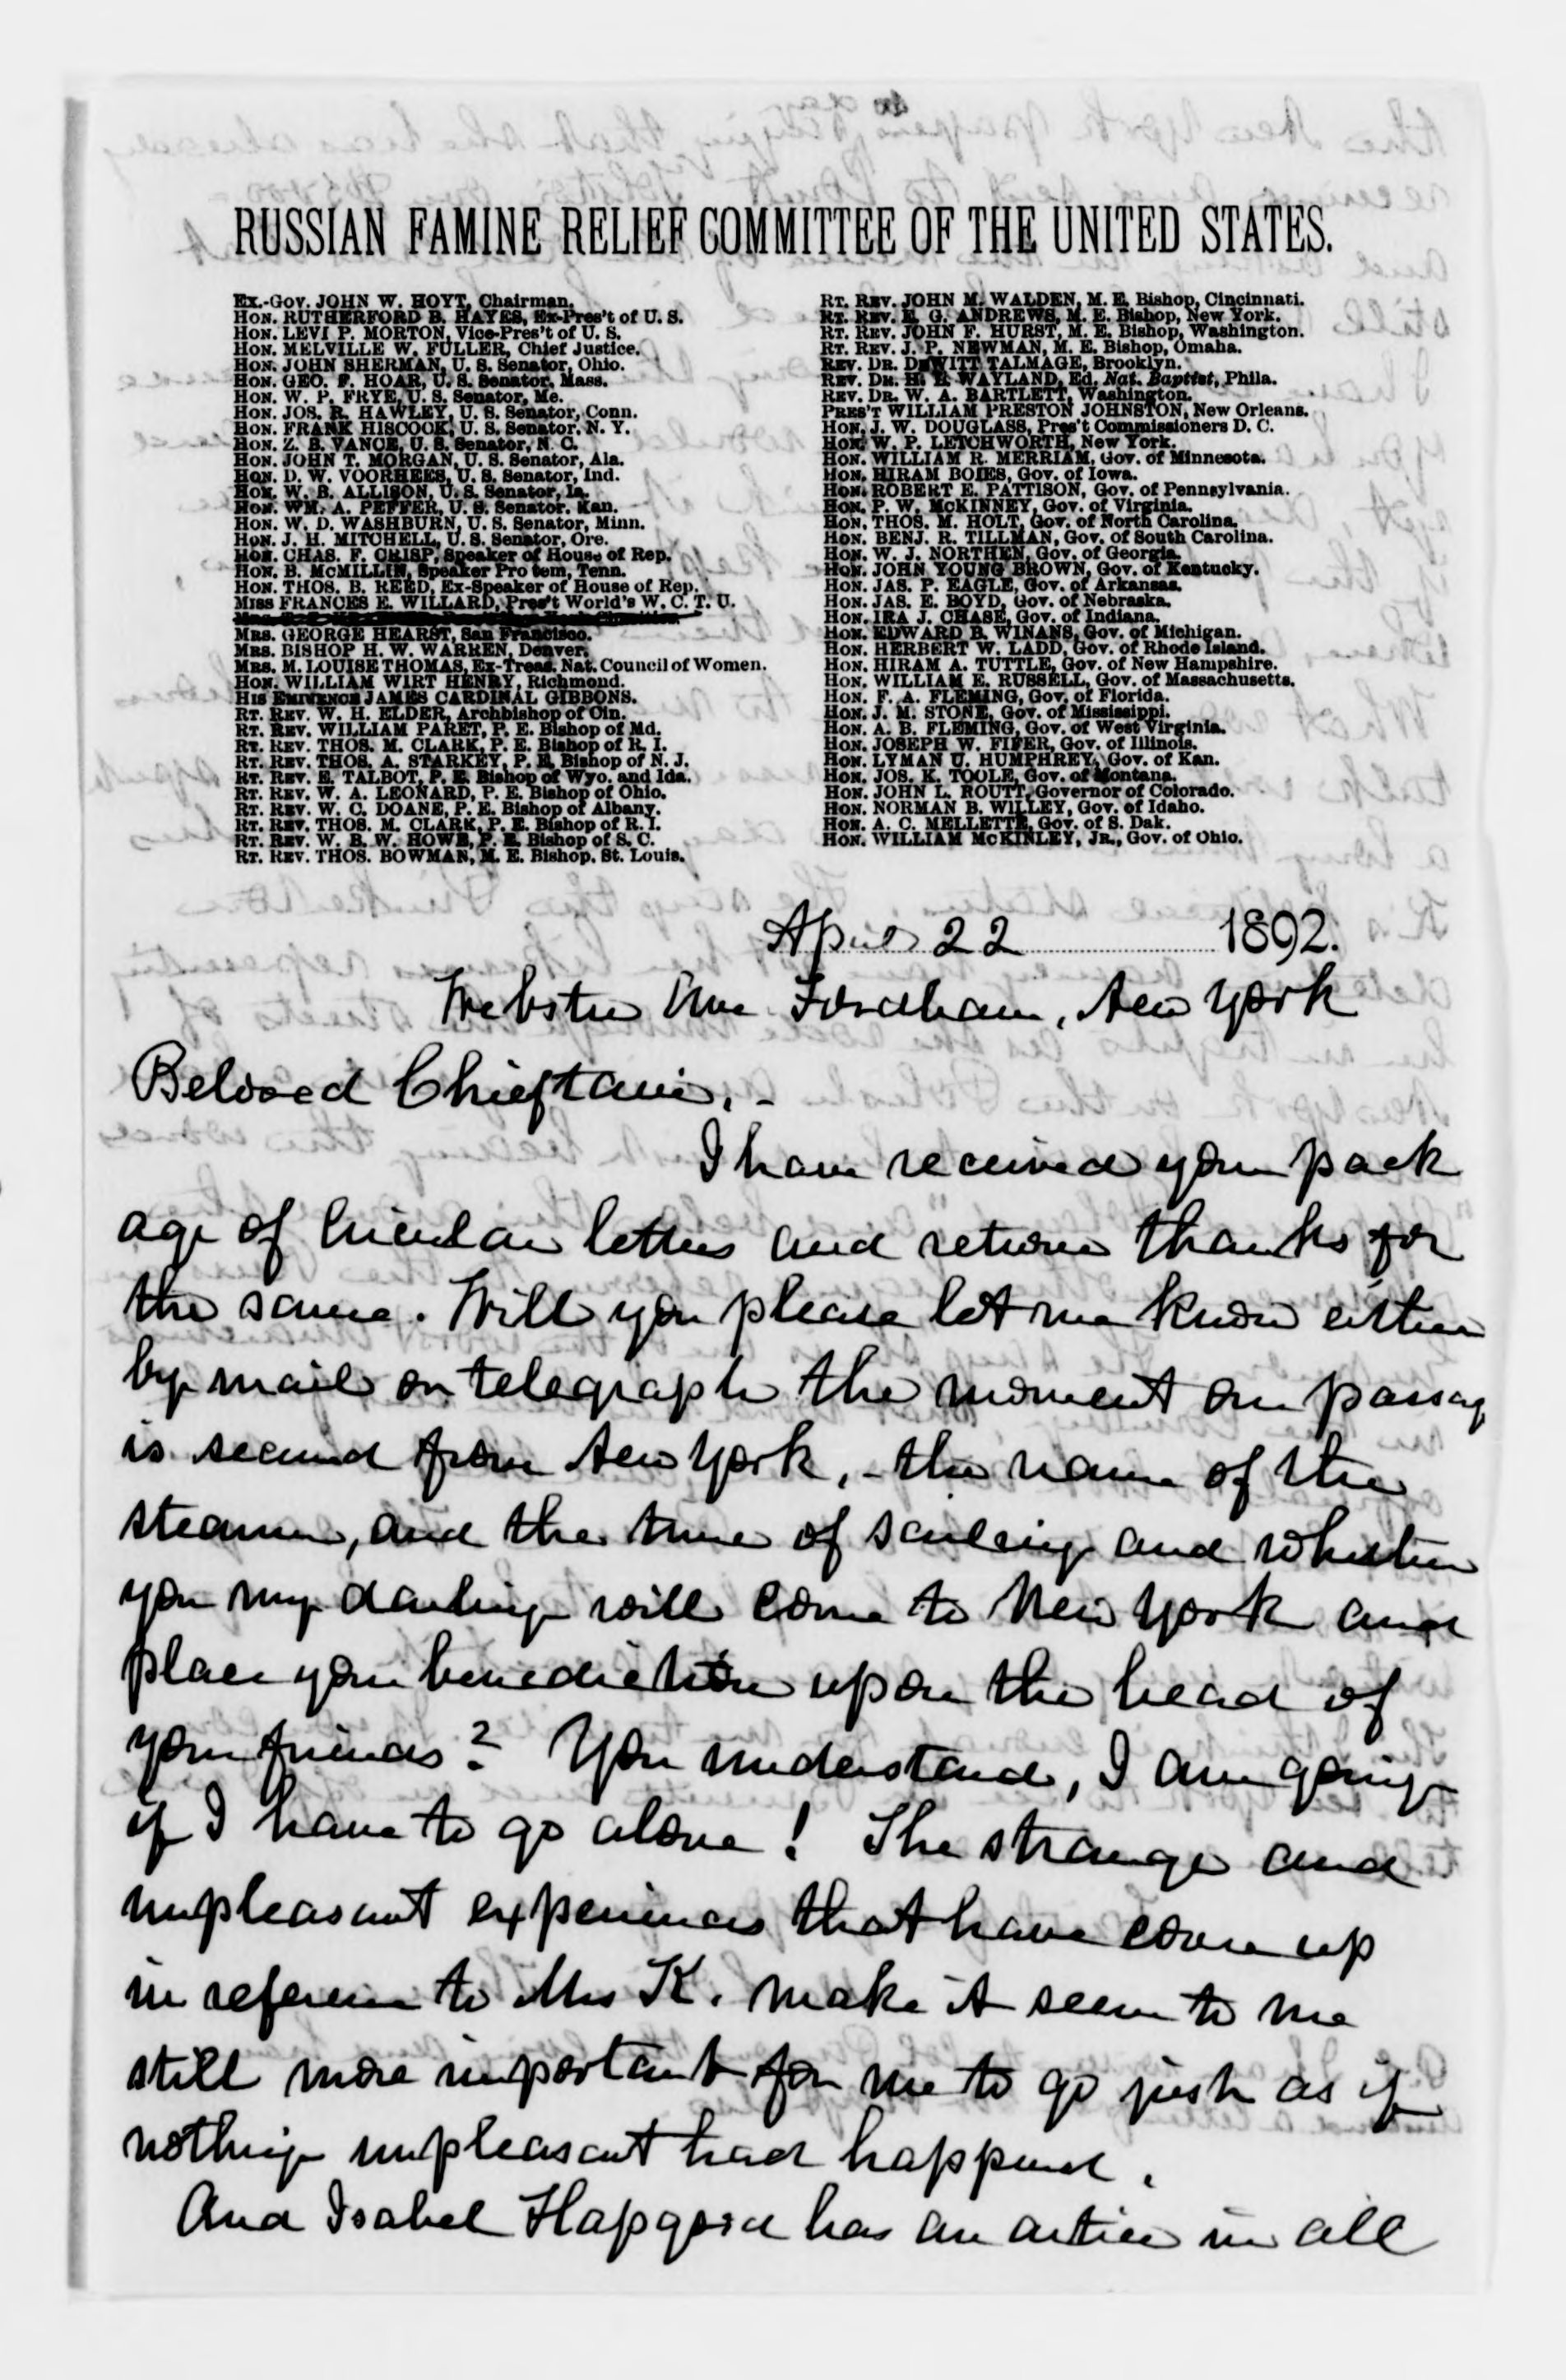 RUSSIAN FAMINE RELIEF COMMITTEE OF THE UNITED STATES.
EX.-GOV. JOHN W. HOYT, Chairman.
HON. RUTHERFORD B. HAYES, Ex-Pres't of U. S.
HON. LEVI P. MORTON, Vice-Pres't of U. S.
HON. MELVILLE W. FULLER, Chief Justice.
HON. JOHN SHERMAN, U. S. Senator, Ohio.
HON. GEO. F. HOAR, U. S. Senator, Mass.
HON. W. P. FRYE, U. S. Senator, Me.
HON. JOS. R. HAWLEY, U. S. Senator, Conn.
HON. FRANK HISCOCK, U. S. Senator, N. Y.
HON. Z. B. VANCE, U. S. Senator, N. C.
HON. JOHN T. MORGAN, U. S. Senator, Ala.
HON. D. W. VOORHEES, U. S. Senator, Ind.
HON. W. B. ALLISON, U. S. Senator, Ia.
HON. WM. A. PEFFER, U. S. Senator. Kan.
HON. W. D. WASHBURN, U. S. Senator, Minn.
HON. J. H. MITCHELL, U. S. Senator, Ore.
HON. CHAS. F. CRISP, Speaker of House of Rep.
HON. B. MCMILLIN, Speaker Pro tem, Tenn.
HON. THOS. B. REED, Ex-Speaker of House of Rep.
MISS FRANCES E. WILLARD, Pres't World's W. C. T. U.
MRS. GEORGE HEARST, San Francisco.
MRS. BISHOP H. W. WARREN, Denver.
MRS. M. LOUISE THOMAS, Ex-Treas. Nat. Council of Women.
HON. WILLIAM WIRT HENRY, Richmond.
HIS EMINENCE JAMES CARDINAL GIBBONS.
RT. REV. W. H. ELDER, Archbishop of Cin.
RT. REV. WILLIAM PARET, P. E. Bishop of Md.
RT. REV. THOS. M. CLARK, P. E. Bishop of R. I.
RT. REV. THOS. A. STARKEY, P. E. Bishop of N. J.
RT. REV. E. TALBOT, P. E. Bishop of Wyo. and Ida.
RT. REV. W. A. LEONARD, P. E. Bishop of Ohio.
RT. REV. W. C. DOANE, P. E. Bishop of Albany.
RT. REV. THOS. M. CLARK, P. E. Bishop of R. I.
RT. REV. W. B. W. HOWE, P. E. Bishop of S. C.
RT. REV. THOS. BOWMAN, M. E. Bishop. St. Louis.
RT. REV. JOHN M. WALDEN, M. E. Bishop, Cincinnati.
RT. REV. E. G. ANDREWS, M. E. Bishop, New York.
RT. REV. JOHN F. HURST, M. E. Bishop, Washington.
RT. REV. J. P. NEWMAN, M. E. Bishop, Omaha.
REV. DR. DEWITT TALMAGE, Brooklyn.
REV. DR. H. L. WAYLAND, Ed. Nat. Baptist, Phila.
REV. DR. W. A. BARTLETT, Washington.
PRES'T WILLIAM PRESTON JOHNSTON, New Orleans.
HON. J. W. DOUGLASS, Pres't Commissioners D. C.
HON. W. P. LETCHWORTH, New York.
HON. WILLIAM R. MERRIAM, Gov. of Minnesota.
HON. HIRAM BOIES, Gov. of Iowa.
HON. ROBERT E. PATTISON, Gov. of Pennsylvania.
HON. P. W. MCKINNEY, Gov. of Virginia.
HON. THOS. M. HOLT, Gov. of North Carolina.
HON. BENJ. R. TILLMAN, Gov. of South Carolina.
HON. W. J. NORTHEN, Gov. of Georgia.
HON. JOHN YOUNG BROWN, Gov. of Kentucky.
HON. JAS. P. EAGLE, Gov. of Arkansas.
HON. JAS. E. BOYD, Gov. of Nebraska.
HON. IRA J. CHASE, Gov. of Indiana.
HON. EDWARD B. WINANS, Gov. of Michigan.
HON. HERBERT W. LADD, Gov. of Rhode Island.
HON. HIRAM A. TUTTLE, Gov. of New Hampshire.
HON. WILLIAM E. RUSSELL, Gov. of Massachusetts.
HON. F. A. FLEMING, Gov. of Florida.
HON. J. M. STONE, Gov. of Mississippi.
HON. A. B. FLEMING, Gov. of West Virginia.
HON. JOSEPH W. FIFER, Gov. of Illinois.
HON. LYMAN U. HUMPHREY, Gov. of Kan.
HON. JOS. K. TOOLE, Gov. of Montana.
HON. JOHN L. ROUTT, Governor of Colorado.
HON. NORMAN B. WILLEY, Gov. of Idaho.
HON. A. C. MELLETTE, Gov. of S. Dak.
HON. WILLIAM MCKINLEY, JR., Gov. of Ohio.
April 22 1892.
Webster Ave Fordham, New York
Beloved Chieftain, -
I have received your pack
age of Circular letters and return thanks for
the same. Will you please let me know either
by mail or telegraph the moment our passag
is secured from New York, - the name of the
steamer, and the time of sailing and whether
you my darling will come to New York and
place your benediction upon the head of
your friends? You understand, I am going
if I have to go alone! The strange and
unpleasant experiences that have come up
in reference to Mrs K. make it seem to me
still more important for me to go just as if
nothing unpleasant had happened.
And Isabel Hapgood has an article in all